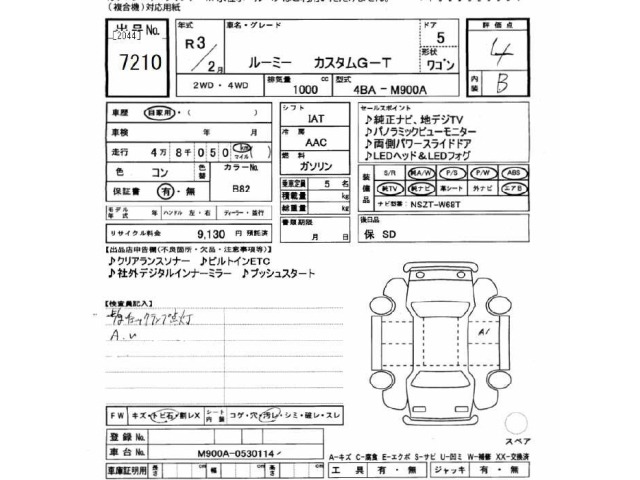 (複合機)対応用紙
出品No. [2044] 7210
年式 R3/2月
車名・グレード ルーミー カスタムG-T
ドア 5
形状 ワゴン
評価点 4
内装 B
2WD・4WD
排気量 1000 cc
型式 4BA-M900A
車歴 自家用・( )
車検 年 月
走行 4万8千050 km マイル( )
色 コン
色替
カラーNo. B82
保証書 有・無
シフト IAT
冷房 AAC
燃料 ガソリン
乗車定員 5名
積載量 kg
総重量 kg
書類期限 月 日
セールスポイント
♪純正ナビ、地デジTV
♪パノラミックビューモニター
♪両側パワースライドドア
♪LEDヘッド&LEDフォグ
装備品 S/R 純A/W P/S P/W ABS
純TV 純ナビ 革シート 外ナビ エアB
ナビ型番: NSZT-W68T
モデル年式 年 ハンドル 左・右 ディーラー・並行
リサイクル料金 9,130 円 預託済
後日品 保 SD
【出品店申告欄(不良箇所・欠品・注意事項等)】
♪クリアランスソナー ♪ビルトインETC
♪社外デジタルインナーミラー ♪プッシュスタート
【検査員記入】
チェックランプ点灯
A.U
A1
FW キズ・トビ石・割レX シート内装 コゲ・穴・汚レ・シミ・破レ・スレ
登録No.
車台No. M900A-0530114
スペア
A-キズ C-腐食 E-エクボ S-サビ U-凹ミ W-補修 XX-交換済
車庫証明用 長さ cm 幅 cm 高さ cm 工具 有・無 ジャッキ 有・無